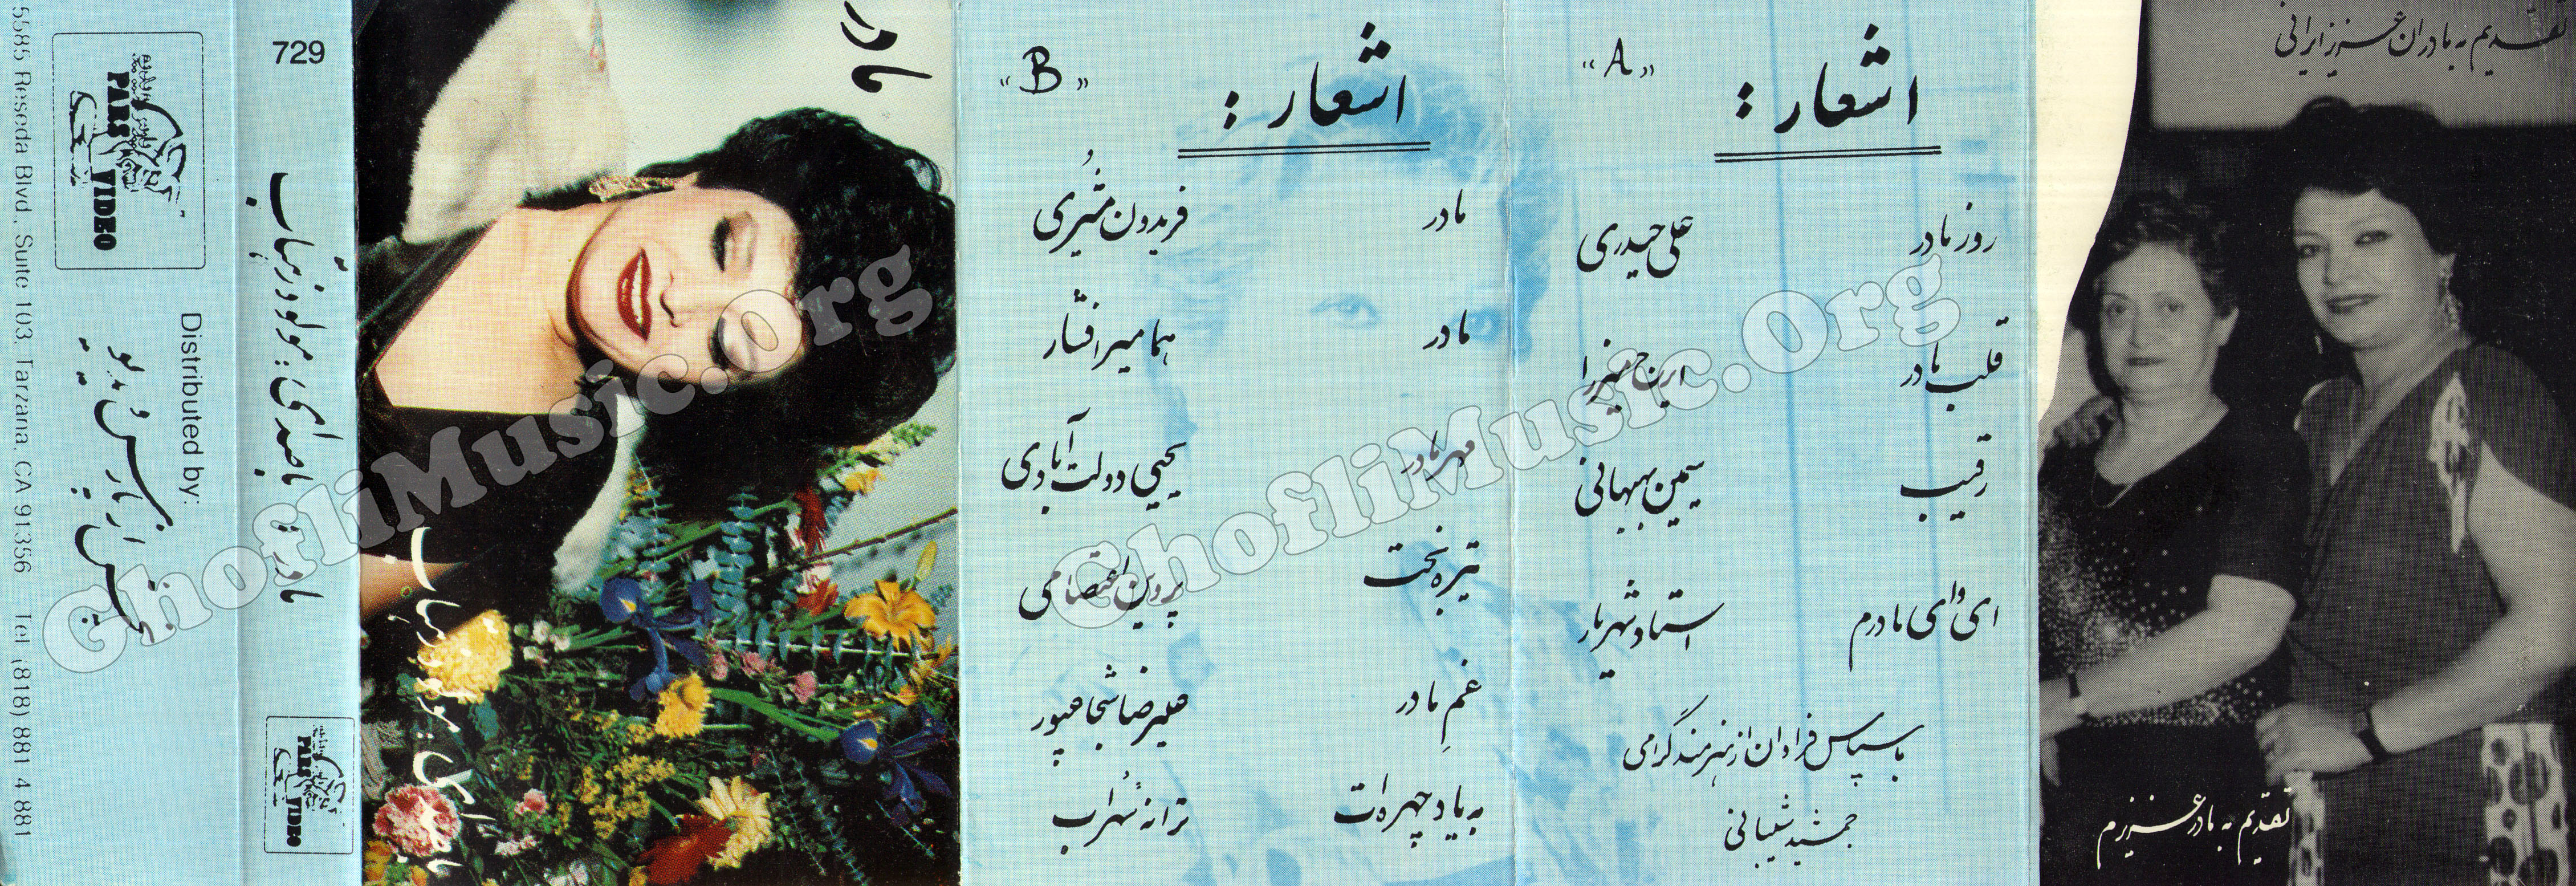 5585 Reseda Blvd. Suite 103, Tarzana, CA 91356 Tel (818) 881 4 881
PARS VIDEO
Distributed by:
پخش از پارس ویدیو
729
مادر
با صدای: مولود زهتاب
PARS VIDEO
مادر
با صدای: مولود زهتاب
«B»
اشعار:
مادر فریدون مُشیری
مادر هما میرافشار
مهر مادر یحیی دولت آبادی
تیره بخت پروین اعتصامی
غمِ مادر علیرضا شجاعپور
به یاد چهره‌ات ترانه سُهراب
«A»
اشعار:
روز مادر علی حیدری
قلب مادر ایرج میرزا
رقیب سیمین بهبهانی
ای وای مادرم استاد شهریار
با سپاس فراوان از هنرمند گرامی
جمشید شیبانی
تقدیم به مادران عزیز ایرانی
تقدیم به مادر عزیزم
GhofliMusic.org
GhofliMusic.Org